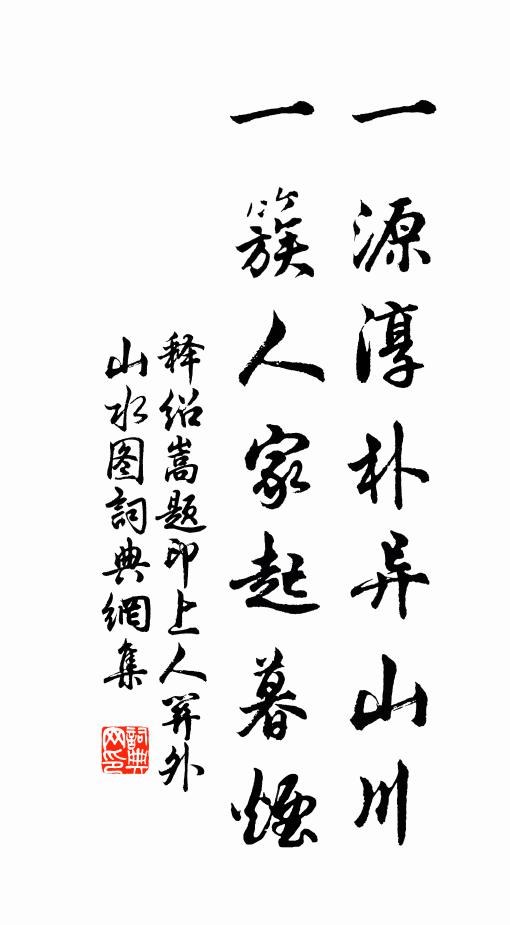 一源淳朴异山川
一簇人家起暮煙
释绍嵩题印上人關外
山水图詞典網集
詞典
网印